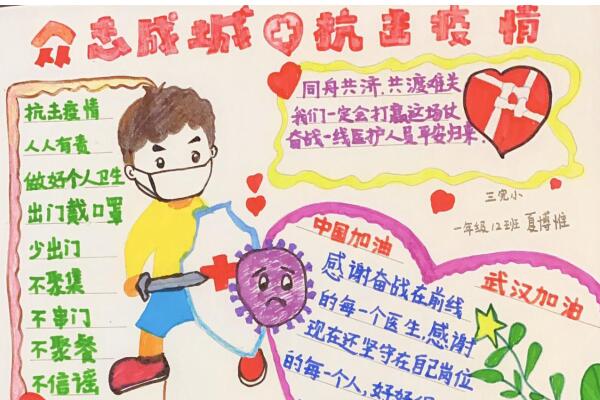 众志成城 抗击疫情
抗击疫情
人人有责
做好个人卫生
出门戴口罩
少出门
不聚集
不串门
不聚餐
不信谣
同舟共济,共渡难关
我们一定会打赢这场仗
奋战一线医护人员平安归来.
三完小
一年级12班 夏博惟
中国加油
武汉加油
感谢奋战在前线
的每一个医生,感谢
现在还坚守在自己岗位
的每一个人,好好